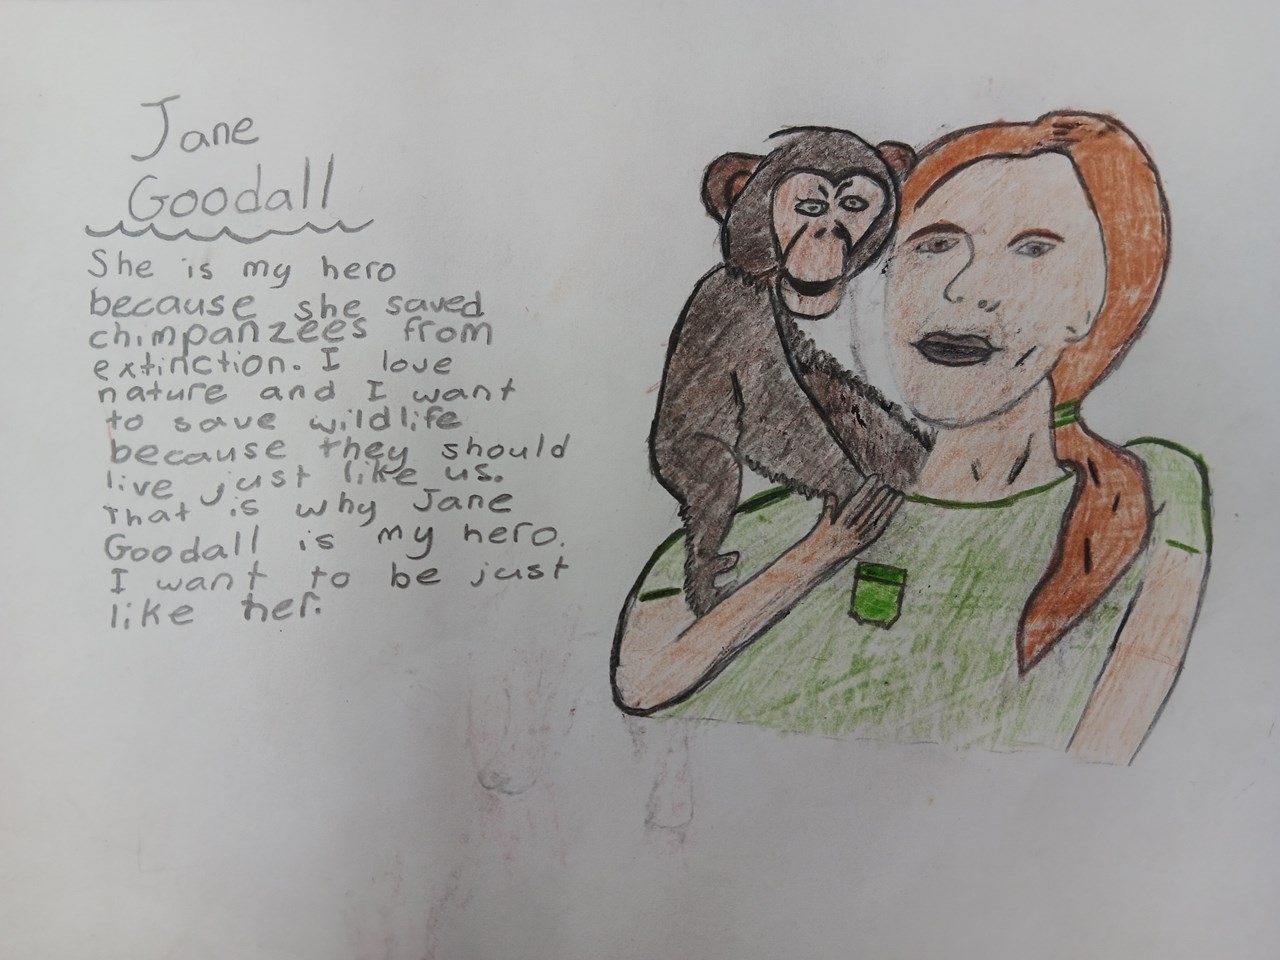 Jane
Goodall
She is my hero
because she saved
chimpanzees from
extinction. I love
nature and I want
to save wildlife
because they should
live just like us.
That is why Jane
Goodall is my hero.
I want to be just
like her.